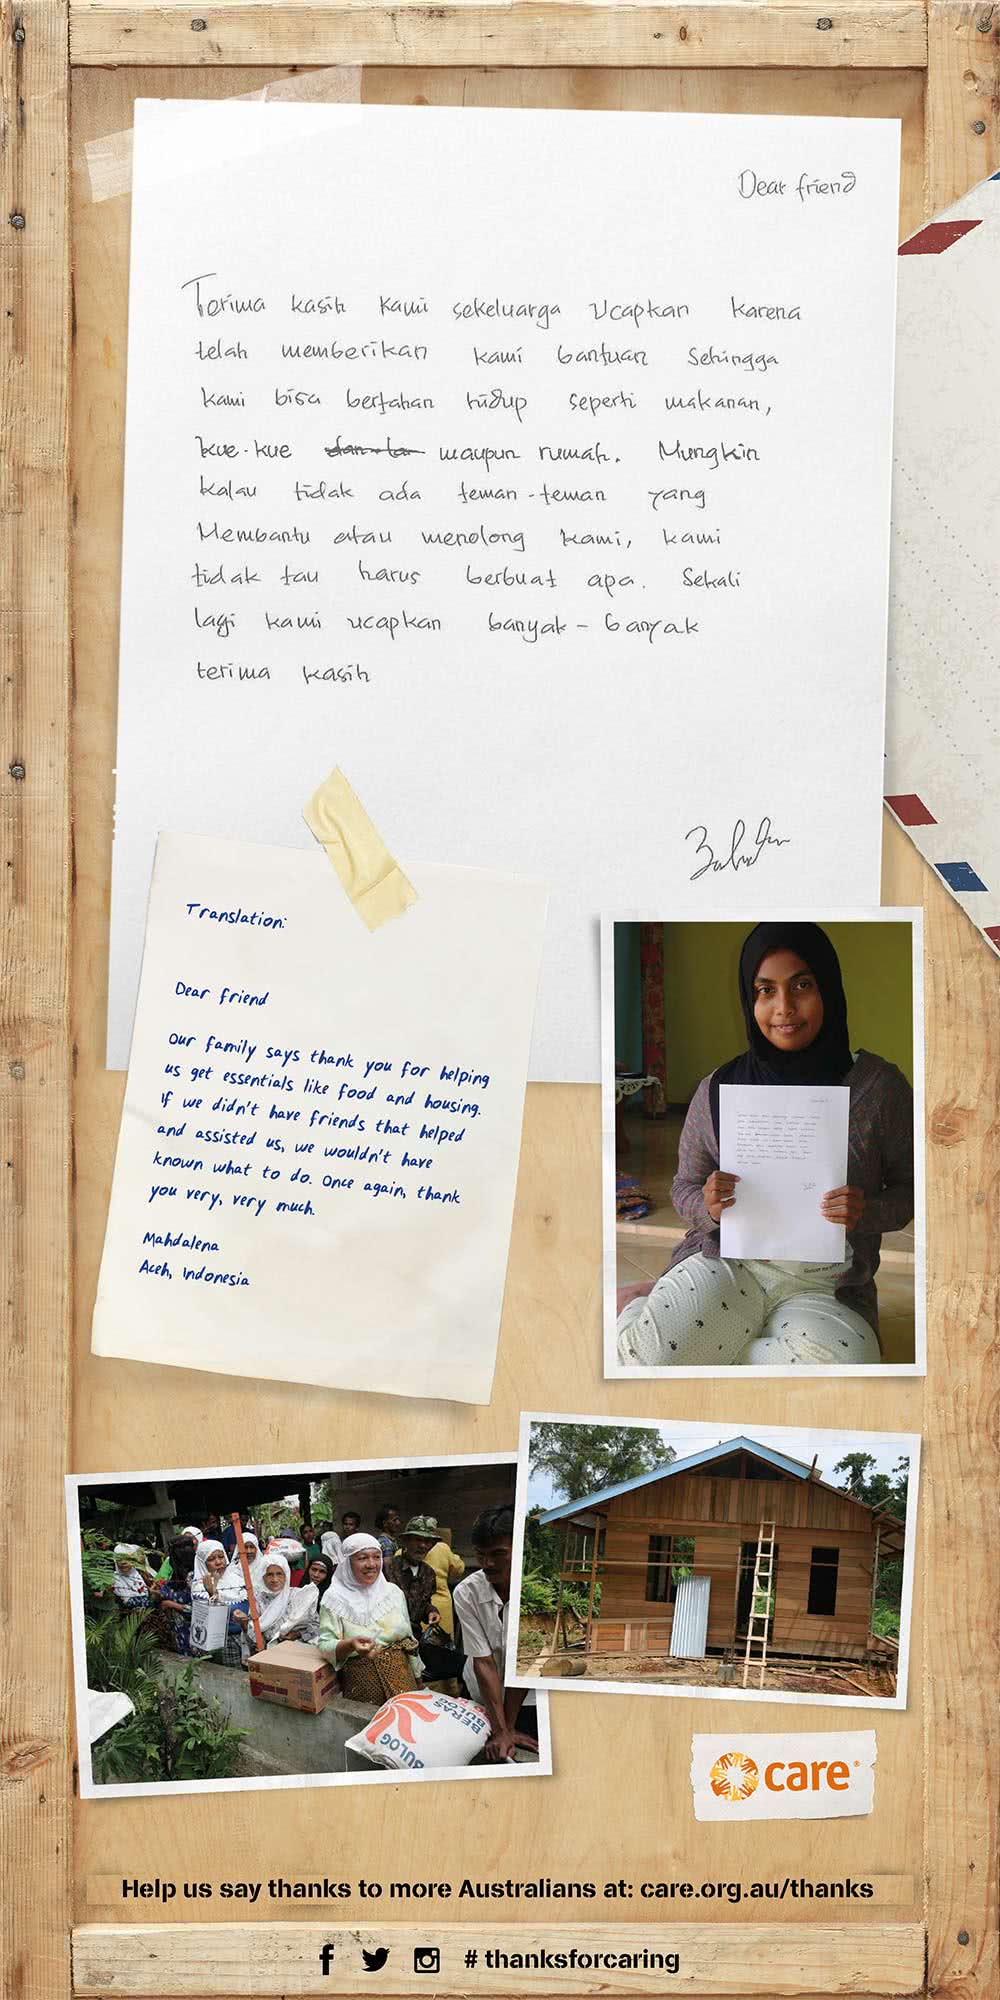 Dear friend
Terima kasih kami sekeluarga ucapkan karena
telah memberikan kami bantuan sehingga
kami bisa bertahan hidup seperti makanan,
kue-kue maupun rumah. Mungkin
kalau tidak ada teman-teman yang
Membantu atau menolong kami, kami
tidak tau harus berbuat apa. Sekali
lagi kami ucapkan banyak-banyak
terima kasih
Translation:
Dear friend
Our family says thank you for helping
us get essentials like food and housing.
If we didn't have friends that helped
and assisted us, we wouldn't have
known what to do. Once again, thank
you very, very much.
Mahdalena
Aceh, Indonesia
BERAS
BULOG
BULOG
care®
Help us say thanks to more Australians at: care.org.au/thanks
# thanksforcaring